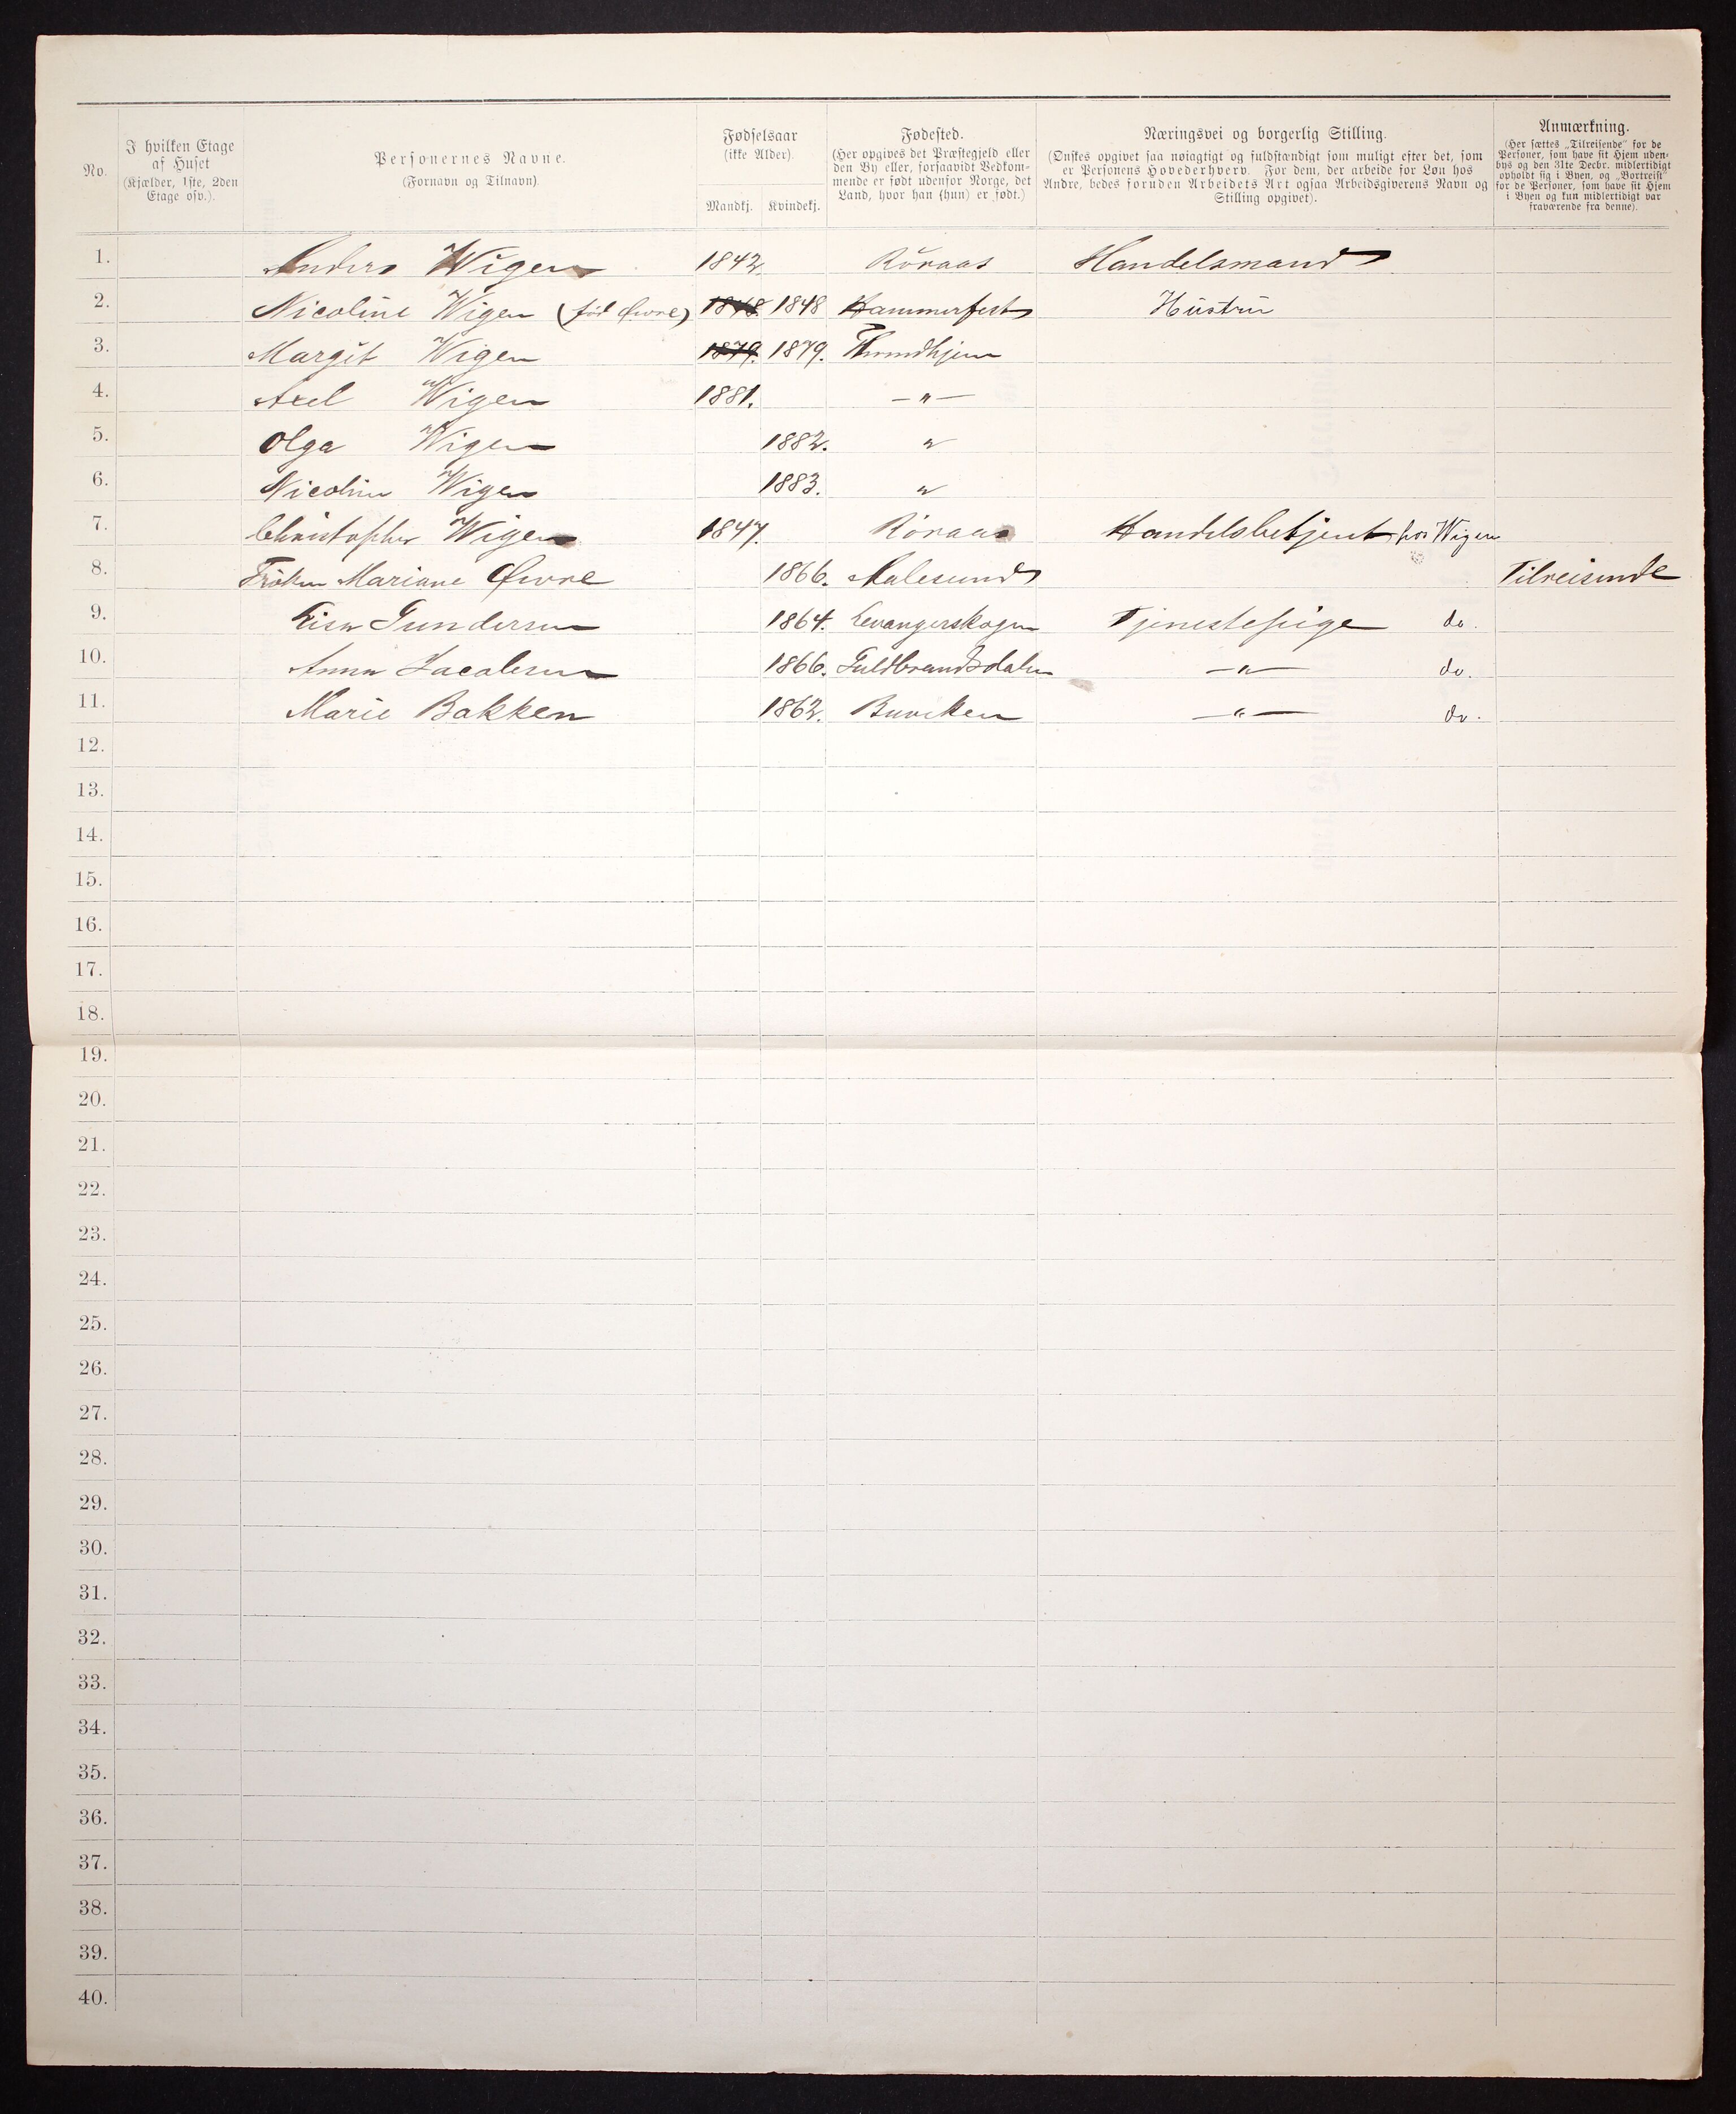 No.
I hvilken Etage af Huset (Kjælder, 1ste, 2den Etage osv.).
Personernes Navne. (Fornavn og Tilnavn).
Fødselsaar (ikke Alder). Mandkj. Kvindekj.
Fødested. (Her opgives det Præstegjeld eller den By eller, forsaavidt Vedkommende er født udenfor Norge, det Land, hvor han (hun) er født.)
Næringsvei og borgerlig Stilling. (Ønskes opgivet saa nøiagtigt og fuldstændigt som muligt efter det, som er Personens Hovederhverv. For dem, der arbeide for Løn hos Andre, bedes foruden Arbeidets Art ogsaa Arbeidsgiverens Navn og Stilling opgivet).
Anmærkning. (Her sættes „Tilreisende" for de Personer, som have sit Hjem udenbys og den 31te Decbr. midlertidigt opholdt sig i Byen, og „Bortreist" for de Personer, som have sit Hjem i Byen og kun midlertidigt var fraværende fra denne).
1. Anders Wigen 1842. Röraas Handelsmand
2. Nicoline Wigen (född Øwre) 1848. 1848 Hammerfest Hüstrü
3. Margit Wigen 1879. 1879. Throndhjem
4. Axel Wigen 1881. — " —
5. Olga Wigen 1882. "
6. Nicoline Wigen 1883. "
7. Christopher Wigen 1847. Röraas Handelsbetjent hos Wigen
8. Fröken Mariane Øwre 1866. Aalesund Tilreisende
9. Lisa Gundersen 1864. Levangerskogen Tjenestepige do.
10. Anna Jacobsen 1866. Guldbrandsdalen — " — do.
11. Marie Bakken 1862. Buviken — " — do.
12.
13.
14.
15.
16.
17.
18.
19.
20.
21.
22.
23.
24.
25.
26.
27.
28.
29.
30.
31.
32.
33.
34.
35.
36.
37.
38.
39.
40.